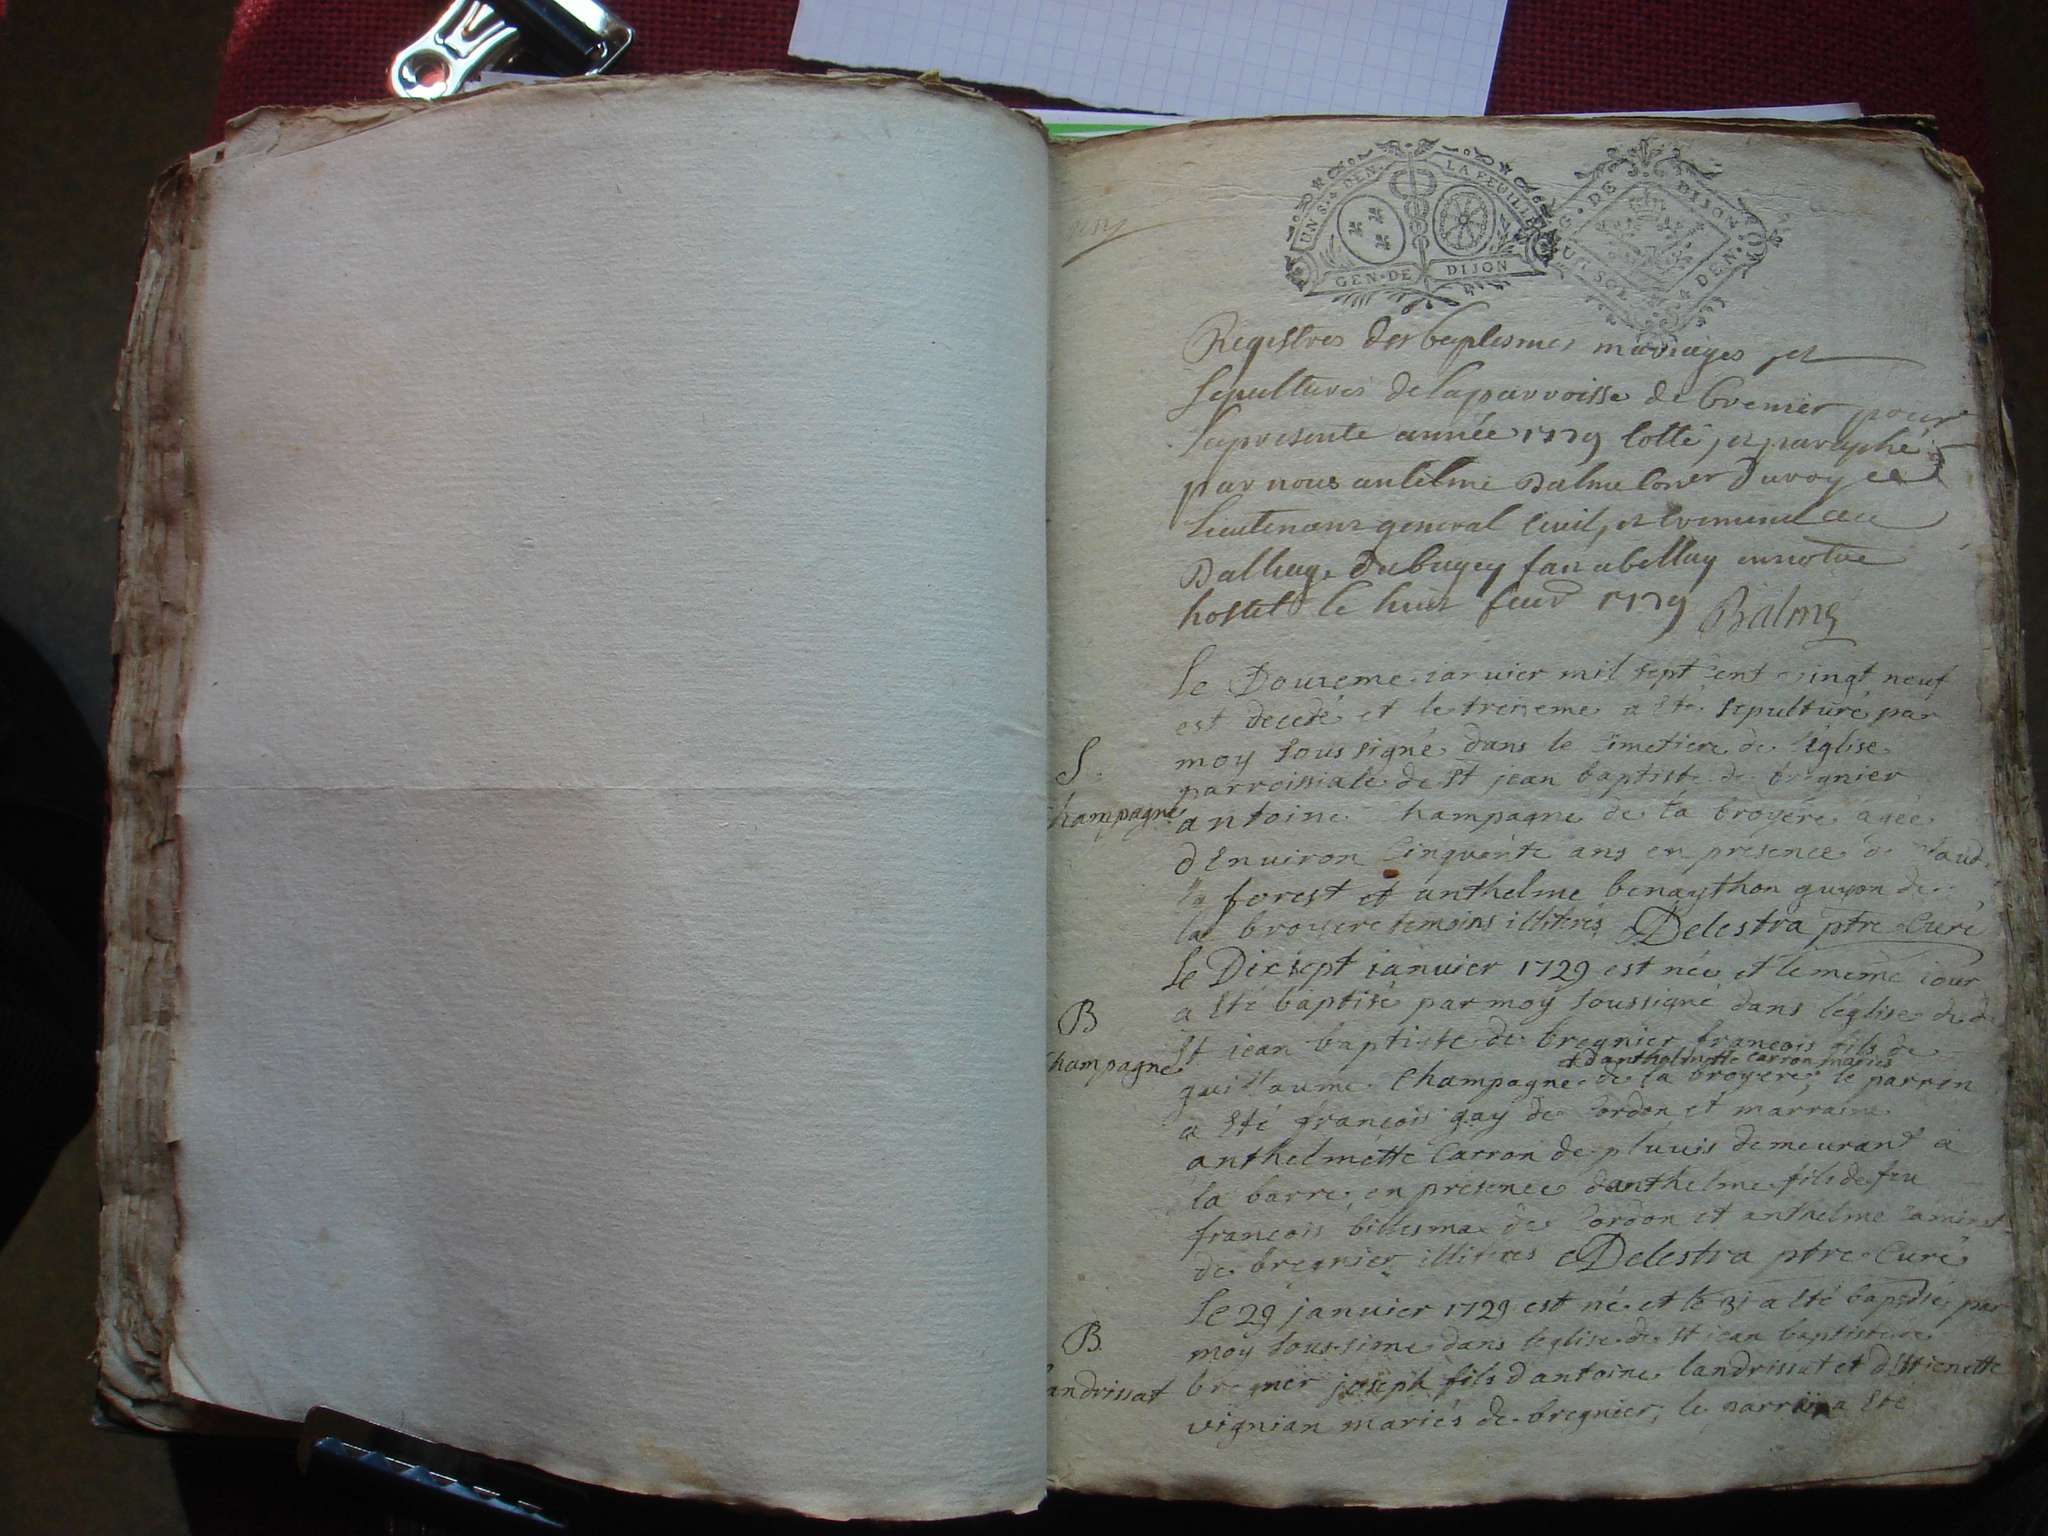 UN S. 4 DEN. LA FEUILLE
GEN. DE DIJON
G. DE DIJON
UN SOL 4 DEN.
Registres des baptesmes mariages et
sepultures de la parroisse de bremier pour
la presente année 1729 cotté et paraphé
par nous antelme Balme coner du roy
Lieutenant general civil, et criminel au
Balliage du bugey fait a belley en notre
hostel le huit feuv 1729 Balme
le Douzeme janvier mil sept cent vingt neuf
est decedé et le treizeme a eté sepulturé par
moy soussigné dans le cimetiere de l'église
S.
parroissiale de st jean baptiste de bregnier
Champagne
antoine Champagne de la broyere agée
d'Environ Cinquante ans en presence de Claude
la forest et anthelme benaython guyon de
la broyere temoins illiterés Delestra ptre Curé
le Dixsept ianvier 1729 est née et le meme iour
B
a eté baptisé par moy soussigné dans l'église de
st jean baptiste de bregnier francois fils de
Champagne
et danthelmette carron mariés
guillaume Champagne de la broyere, le parrin
a eté françois gay de Cordon et marraine
anthelmette Carron de pluvis demeurant a
la barre en presence danthelme fils de feu
francois billesma de Cordon et anthelme
de bregnier illiteres Delestra ptre Curé
le 29 janvier 1729 est né et le 31 a eté baptisé par
B
moy soussigné dans l'eglise de st jean baptiste de
Landrissat
bregnier joseph fils d'antoine landrissat et d'Etienette
vignian mariés de bregnier, le parrin a ete